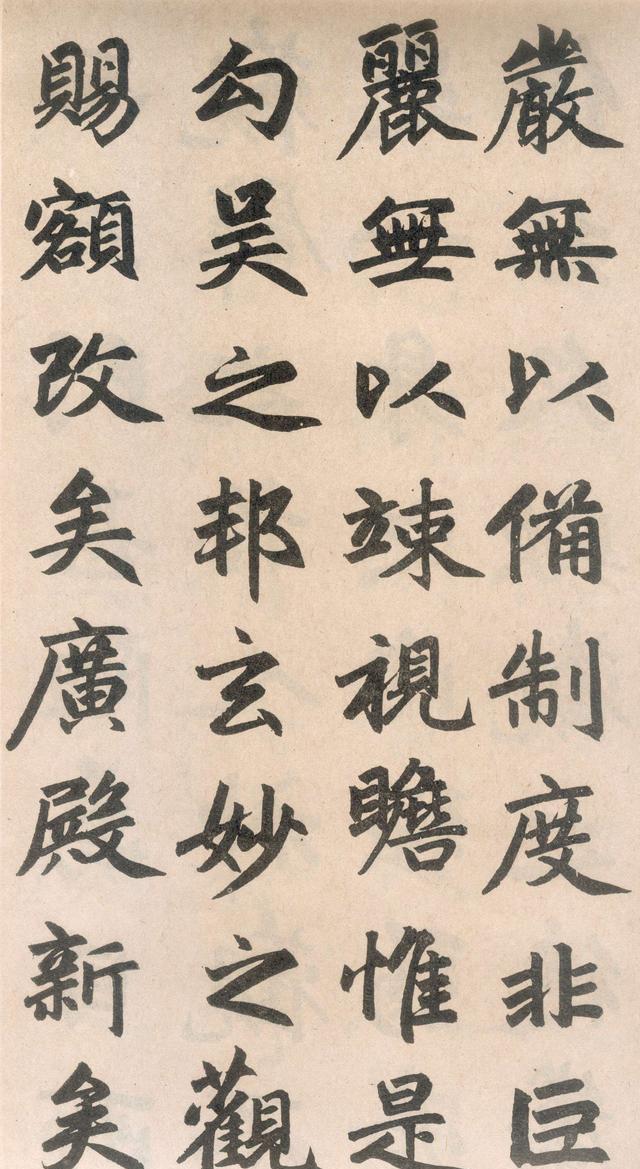 嚴無以備制度非巨
麗無以竦視瞻惟是
勾吴之邦玄妙之觀
賜額改矣廣殿新矣